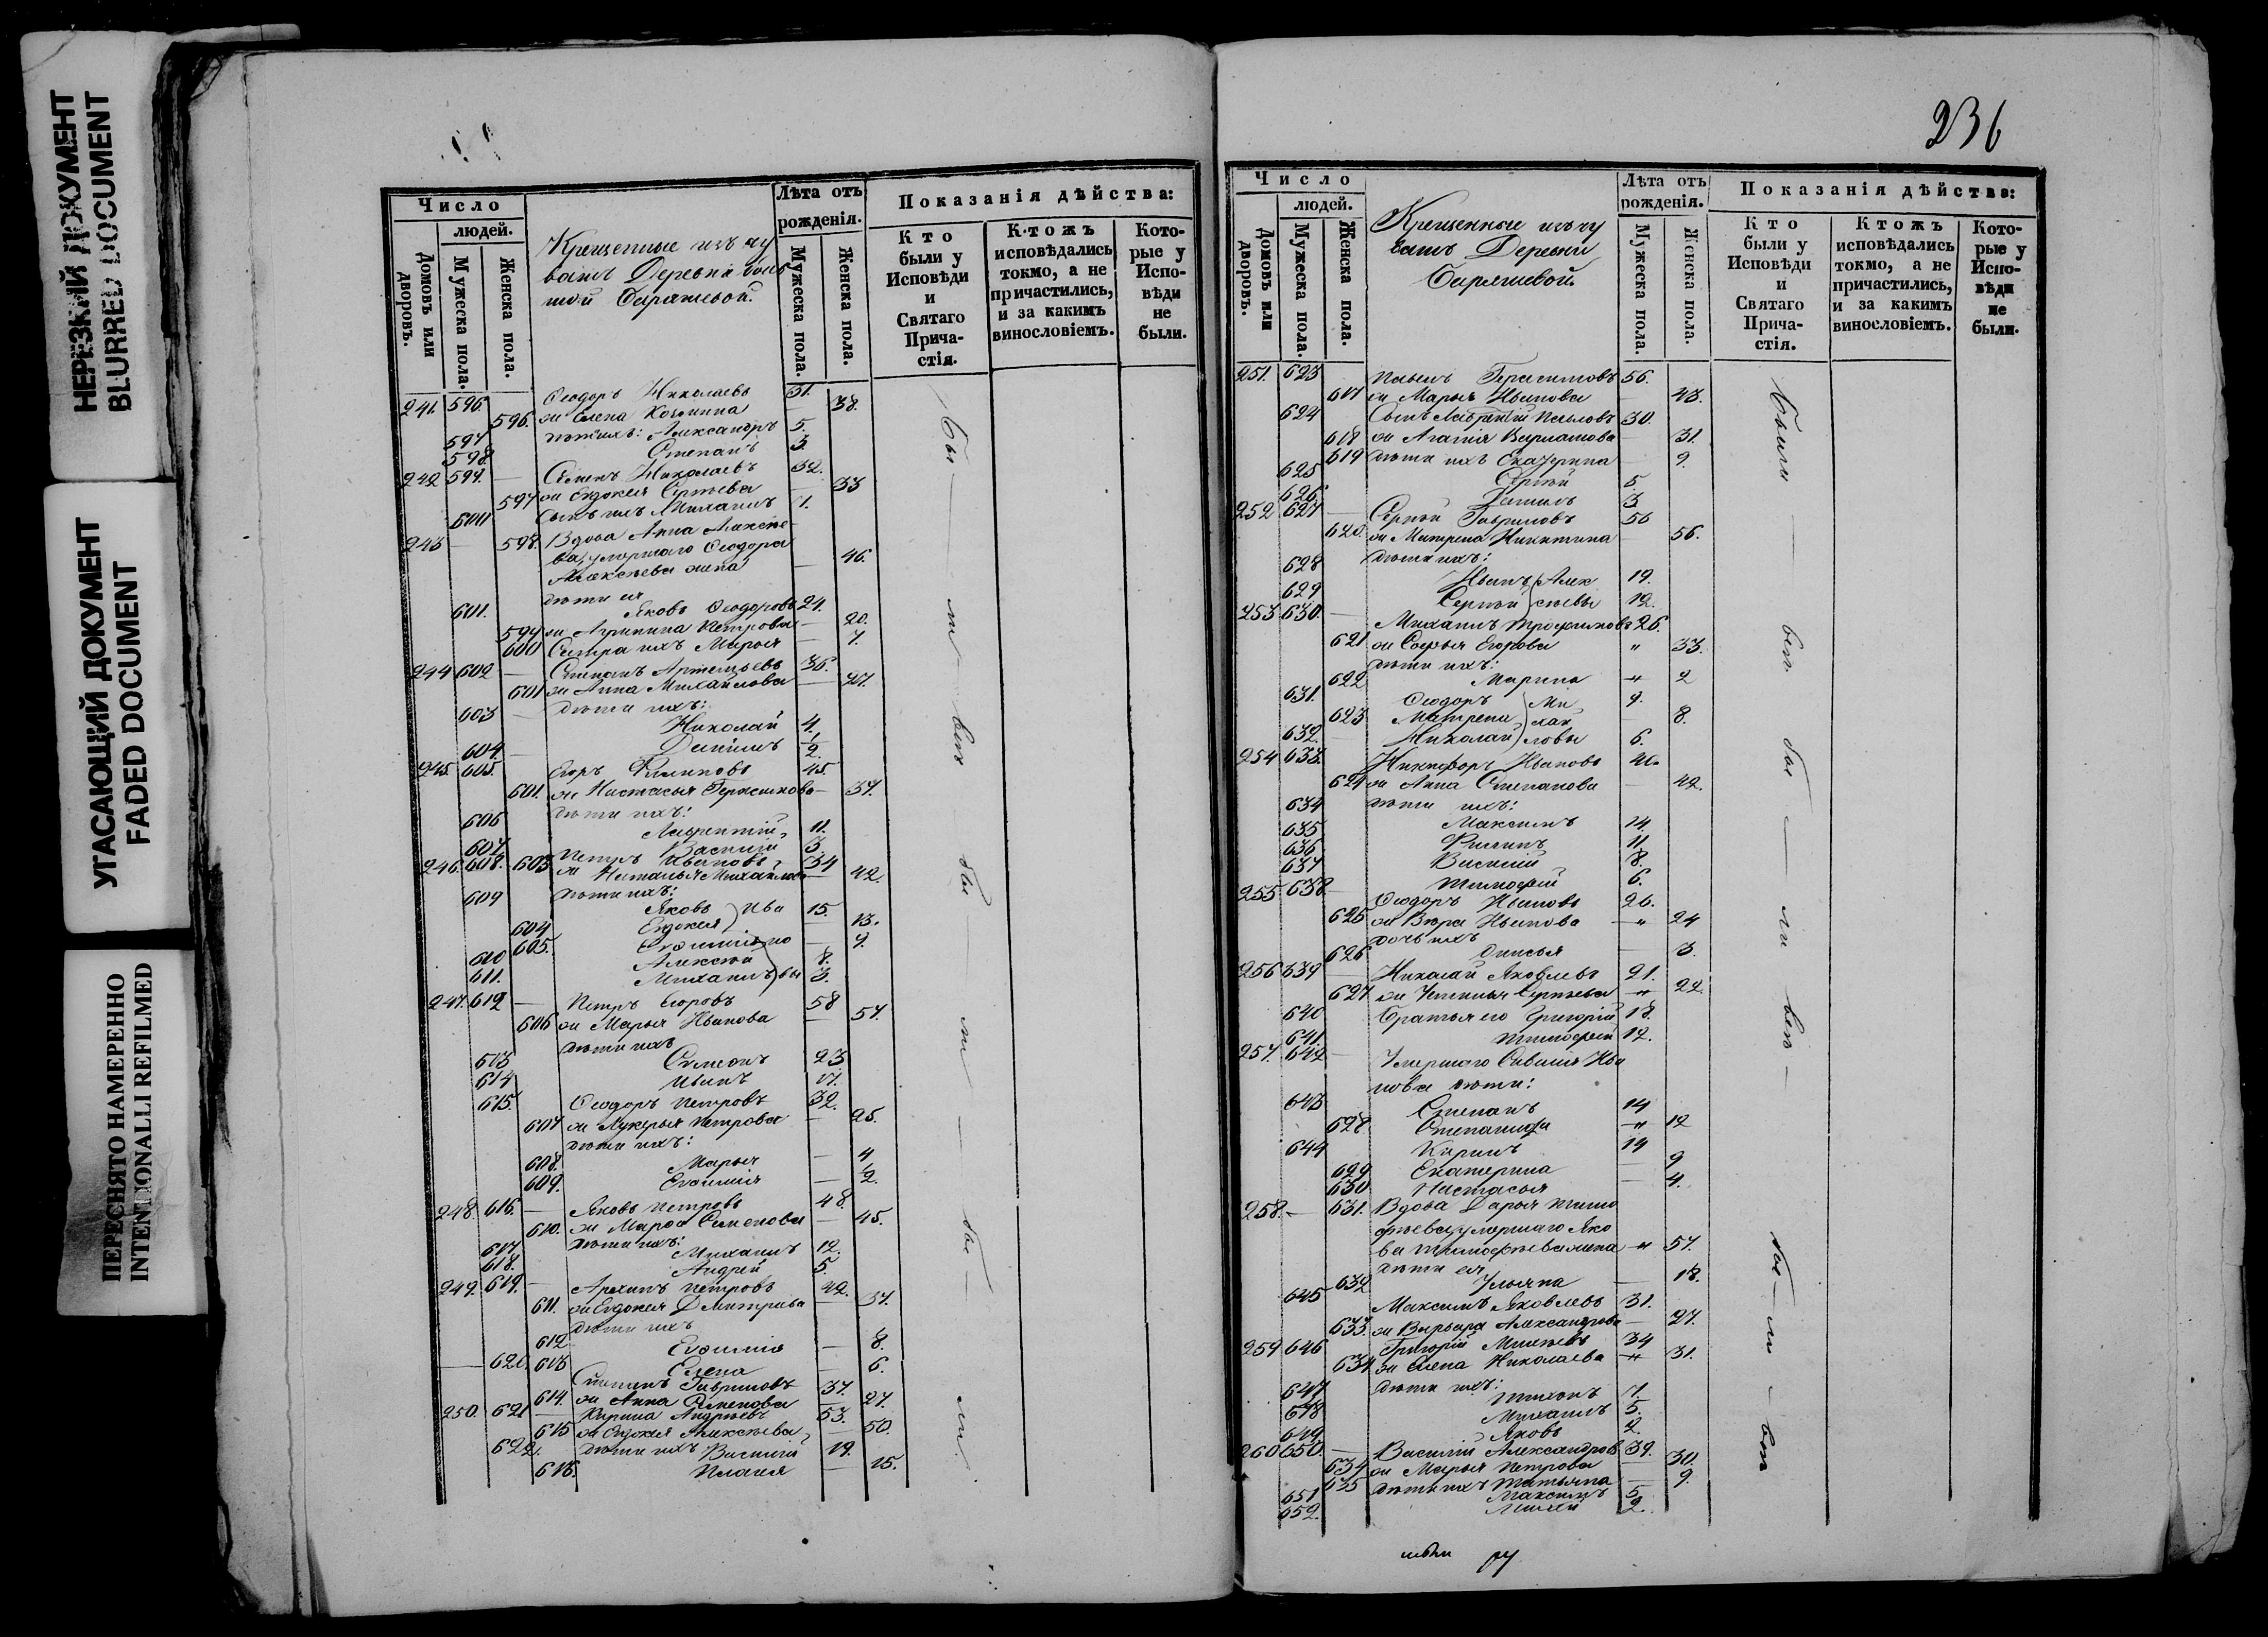 НЕРЕЗКИЙ ДОКУМЕНТ
BLURRED DOCUMENT
УГАСАЮЩИЙ ДОКУМЕНТ
FADED DOCUMENT
ПЕРЕСНЯТО НАМЕРЕННО
INTENTIONALLI REFILMED
Число
людей.
Домовъ или дворовъ.
Мужеска пола.
Женска пола.
Крещенные изъ чу
вашъ Деревни Боль
шой Баряшевой.
Лѣта отъ рожденія.
Мужеска пола.
Женска пола.
Показанія дѣйства:
Кто были у Исповѣди и Святаго Причастія.
Ктожъ исповѣдались токмо, а не причастились, и за какимъ винословіемъ.
Которые у Исповѣди не были.
241. 596. Ѳеодоръ Николаевъ 31.
596. ж Елена Козмина 38.
597 дѣти ихъ: Александръ 5.
598. Степанъ 3.
242 599. — Семенъ Николаевъ 32.
597 ж Евдокея Сергѣева 33
600 Сынъ ихъ Михаилъ 1.
243 — 598. Вдова Анна Алексѣе-
ва, умершаго Ѳеодора
Алексѣева жена — 46.
дѣти ея
601. Яковъ Ѳеодоровъ 24.
599 ж Агрипина Петрова — 20.
600 Сестра ихъ Марья — 7.
244 602 — Степанъ Артемьевъ 36.
601 ж Анна Михайлова — 27.
603 — дѣти ихъ:
Николай 4.
604. — Данилъ 1/2.
245. 605. Егоръ Филиповъ 45.
601. ж Настасья Герасимова — 37.
606 дѣти ихъ:
Лаврентій 11.
607 Василій 3.
246. 608. Петръ Ивановъ 34
603 ж Наталья Михайлова — 42.
609 дѣти ихъ:
Яковъ } Ива 15.
604 Евдокея — 13.
605. Евѳимія но — 9.
610 Алексѣй 8.
611. Михаилъ вы 3.
247. 612 — Петръ Егоровъ 58
606 ж Марья Иванова — 57.
дѣти ихъ
613 Симеонъ 23
614 Иванъ 17.
615. Ѳеодоръ Петровъ 32.
607 ж Лукерья Петрова — 25.
дѣти ихъ:
608. Марья — 4
609. Евѳимія — 1/2.
248. 616. — Яковъ Петровъ 48.
610. ж Марѳа Семенова — 45.
617 дѣти ихъ: Михаилъ 12.
618. Андрей 5.
249. 619. — Архипъ Петровъ 42.
611. ж Евдокея Дмитрева — 37.
дѣти ихъ
612 Евѳимія — 8.
613 Елена — 6.
— 620. Степанъ Гавриловъ 37.
614. ж Анна Семенова — 27.
250. 621 — Кирила Андреевъ 53.
615 ж Евдокея Алексѣева — 50.
622. дѣти ихъ Василій 19.
616. Пелагея — 15.
бы — ли — всѣ — бы — ли — бы — ли
236
Число
людей.
Домовъ или дворовъ.
Мужеска пола.
Женска пола.
Крещенные изъ чу
вашъ Деревни
Баряшевой.
Лѣта отъ рожденія.
Мужеска пола.
Женска пола.
Показанія дѣйства:
Кто были у Исповѣди и Святаго Причастія.
Ктожъ исповѣдались токмо, а не причастились, и за какимъ винословіемъ.
Которые у Исповѣди не были.
251. 623 Павелъ Герасимовъ 56.
617 ж Марья Иванова — 43.
624 Сынъ Лаврентій Павловъ 30.
618 ж Агапія Варламова — 31.
619 дѣти ихъ Екатерина — 9.
625 Сергѣй 5.
626. Данилъ 3
252 627 — Сергѣй Гавриловъ 56
620. ж Матрена Никитина — 56.
628 дѣти ихъ:
Иванъ } Алек 19.
629 Сергѣй } сѣевы 12.
253 630. — Михаилъ Трофимовъ 26.
621 ж Софья Егорова " 33.
дѣти ихъ:
622 Марина " 2
631. Ѳеодоръ } Ми 9.
623 Матрена } хаи — 8.
632. Николай } ловы 6.
254 633. Никифоръ Ивановъ 40.
624 ж Анна Степанова — 42.
634 дѣти ихъ:
Максимъ 14.
635 Филипъ 11.
636 Василій 8.
637 Тимофей 6.
255. 638 Ѳеодоръ Ивановъ 26.
625 ж Вѣра Иванова " 24
дочь ихъ
626 Анисья — 3.
256 639 — Николай Яковлевъ 21.
627 ж Устинья Сергѣева " 22.
640 Братья его Григорій 18.
641. Тимофей 12.
257. 642 — Умершаго Савелія Ива
нова дѣти:
643 Степанъ 14
628 Степанида " 12
644 Кирилъ 14
629 Екатерина — 9
630 Настасья — 4.
258. — 631. Вдова Дарья Тимо
фѣева, умершаго Яко
ва Тимофѣева жена " 57.
дѣти ея
632 Ульяна — 18.
645 Максимъ Яковлевъ 31.
633. ж Варвара Александрова — 27.
259 646 Григорій 34
634 ж Елена Николаева " 31.
647 дѣти ихъ: Тихонъ 7.
648 Михаилъ 5.
649 Яковъ 2.
260 650. — Василій Александров 39.
634 ж Марья Петрова — 30.
635 дѣти ихъ Татьяна — 9.
651 Максимъ 5
652. 2.
были — всѣ — бы — ли всѣ — бы — ли — всѣ